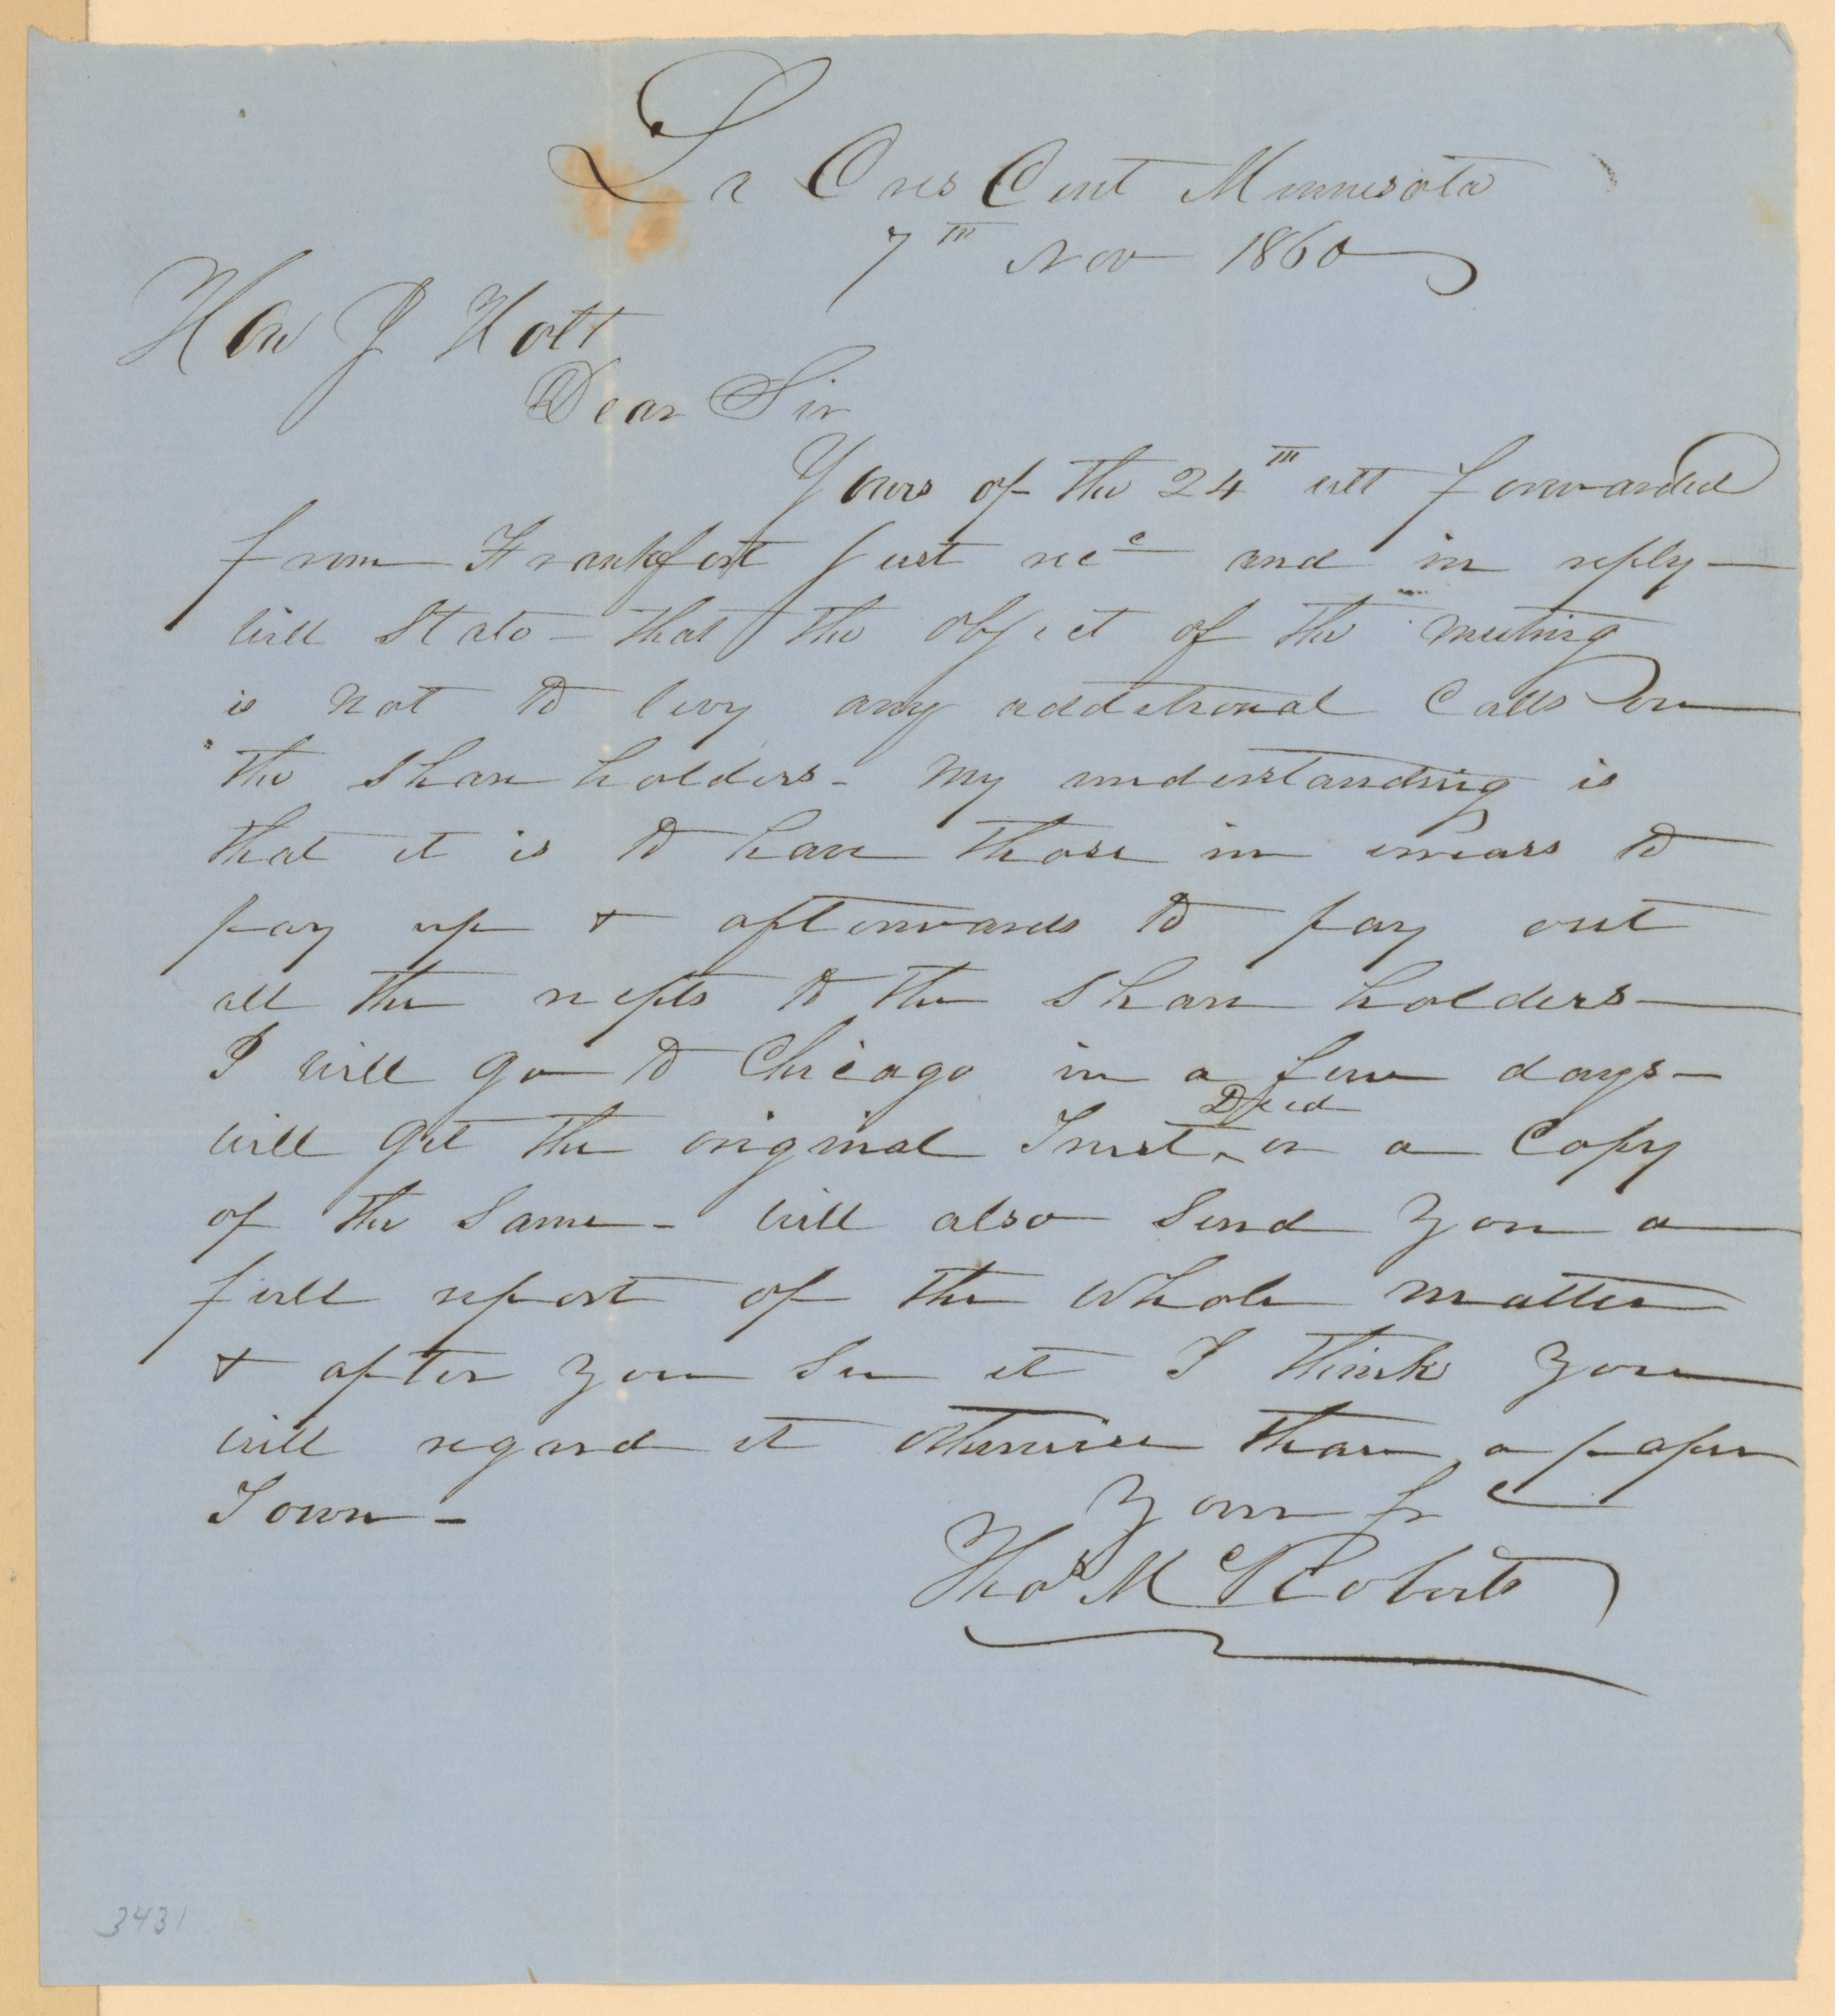 La CresCent Minnesota
7th Nov 1860
Hon J Holt
Dear Sir
Yours of the 24th ult forwarded
from Frankfort just recd and in reply
will State - that the object of the meeting
is not to levy any additional Calls on
the share holders - My understanding is
that it is to have those in arrears to
pay up & afterwards to pay out
all the recpts to the share holders
I will go to Chicago in a few days -
will get the original Trust Deed or a Copy
of the same - will also send you a
full report of the whole matter
& after you see it I think you
will regard it otherwise than a paper
Town -
Your fr
Thos McRoberts
3431